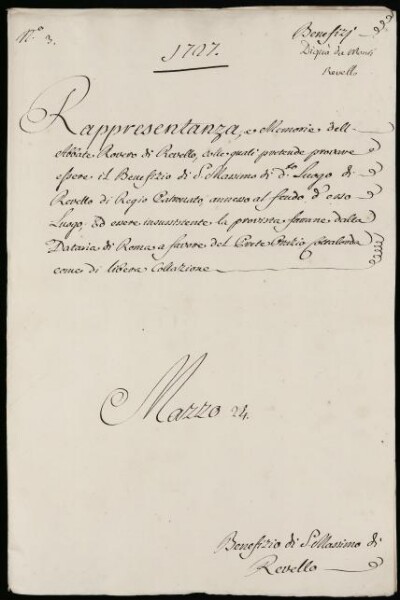 N.o 3.
Benefizj
Revello
1727.
Rappresentanza, e Memorie dell
Abbate Rovero di Revello, colle quali pretende provare
essere il Benefizio di S. Massimo di d.to Luogo di
Revello di Regio Patronato, annesso al feudo d'esso
Luogo, ed essere insussistente la provista fattane dalla
Dataria di Roma a favore del
come di libera Collazione
Marzo 24.
Benefizio di S. Massimo di
Revello